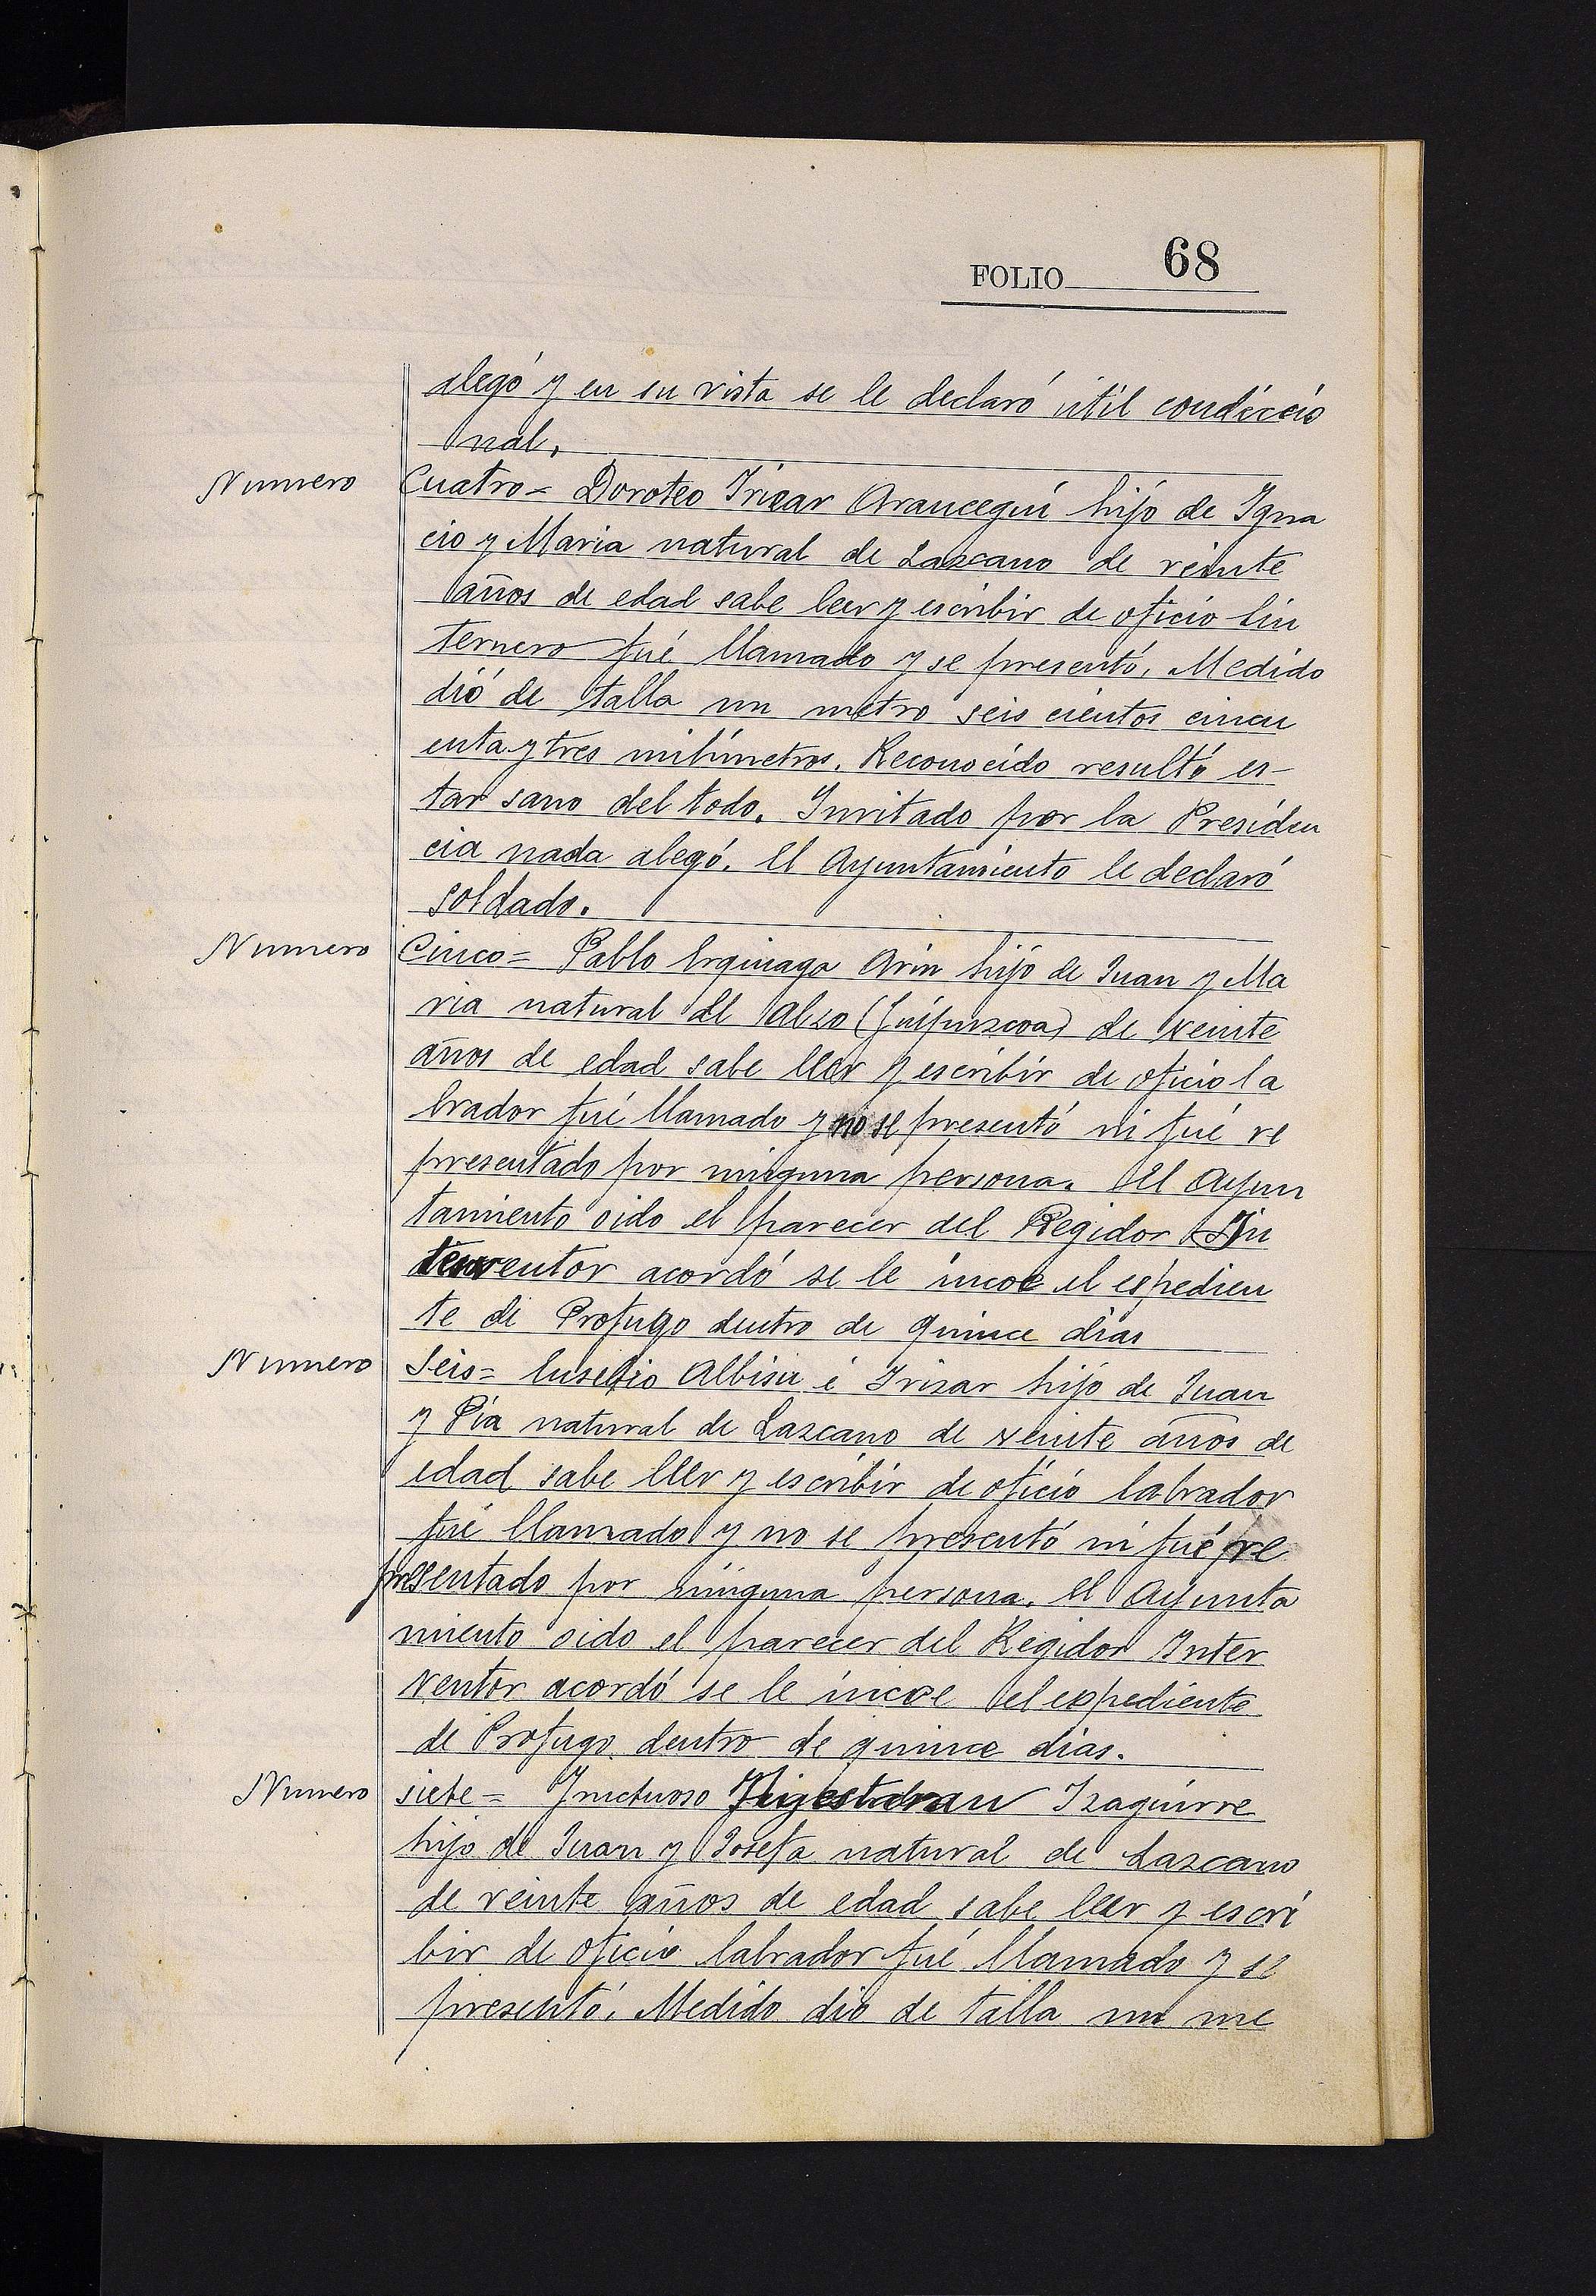 FOLIO 68
alegó y en su vista se le declaró útil condicio
nal.
Numero Cuatro = Doroteo Irizar Arancegui hijo de Igna
cio y Maria natural de Lazcano de veinte
años de edad sabe leer y escribir de oficio lin
ternero fué llamado y se presentó. Medido
dió de talla un metro seis cientos cincu
enta y tres milimetros. Reconocido resultó es-
tar sano del todo. Invitado por la Presiden
cia nada alegó. El Ayuntamiento le declaró
soldado.
Numero Cinco = Pablo Arin hijo de Juan y Ma
ria natural de Alzo (Guipuzcoa) de veinte
años de edad sabe leer y escribir de oficio la
brador fué llamado y no se presentó ni fué re
presentado por ninguna persona. El Ayun
tamiento oido el parecer del Regidor In
terventor acordó se le incoe el espedien
te de Profugo dentro de quince dias
Numero Seis = Eusebio Albisu é Irizar hijo de Juan
y Pia natural de Lazcano de veinte años de
edad sabe leer y escribir de oficio labrador
fué llamado y no se presentó ni fué re
presentado por ninguna persona. El Ayunta
miento oido el parecer del Regidor Inter
ventor acordó se le incoe el espediente
de Profugo dentro de quince dias.
Numero siete = Fructuoso Izaguirre
hijo de Juan y Josefa natural de Lazcano
de veinte años de edad sabe leer y escri
bir de oficio labrador fué llamado y se
presentó. Medido dio de talla un me